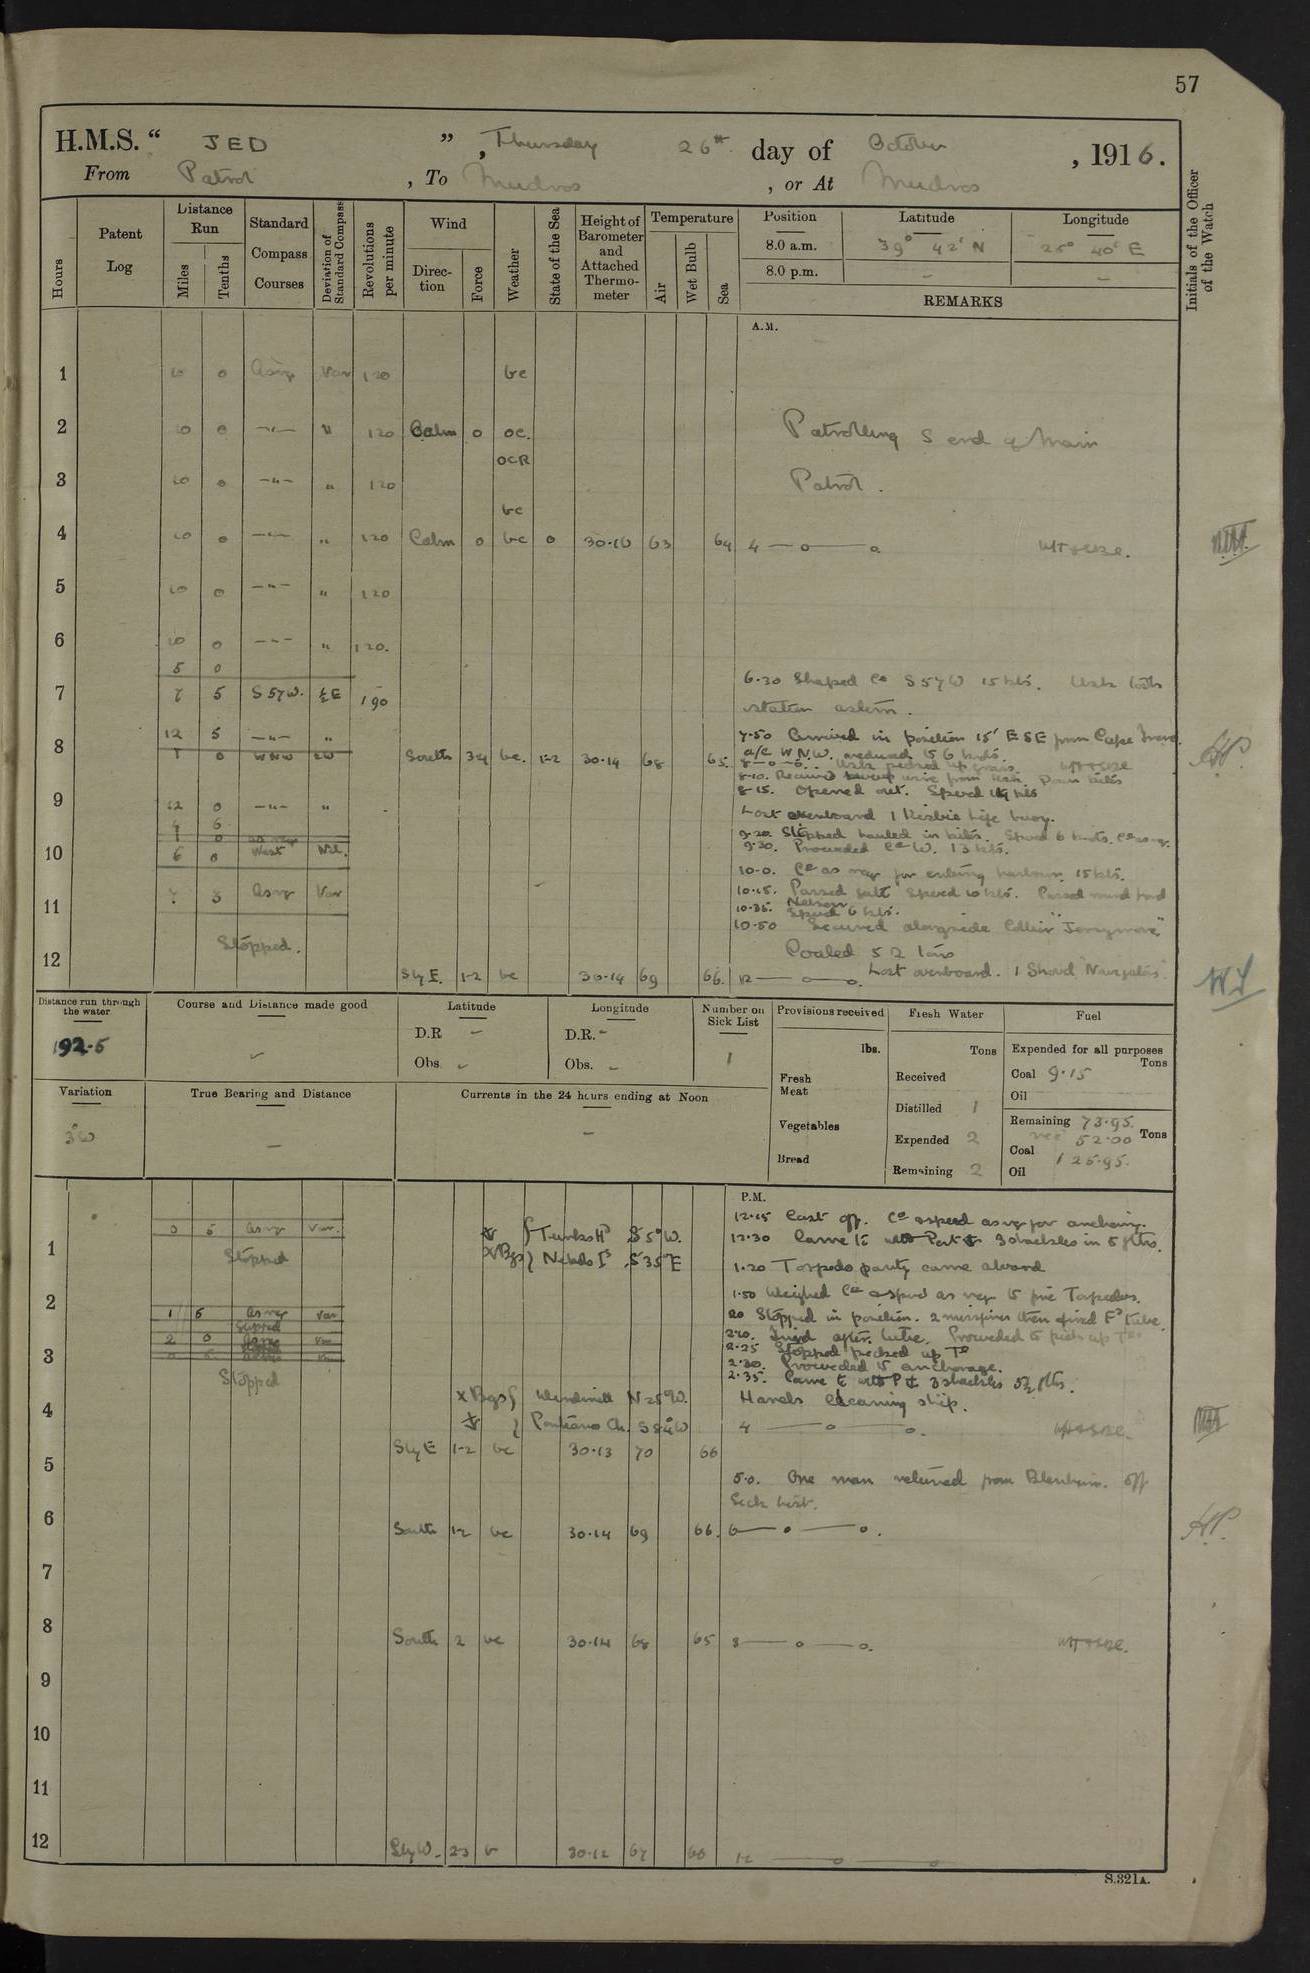 57
H.M.S. “ JED ” , Thursday 26th day of October , 1916.
From Patrol , To Mudros , or At Mudros
Hours
Patent Log
Distance Run
Miles
Tenths
Standard Compass Courses
Deviation of Standard Compass
Revolutions per minute
Wind
Direction
Force
Weather
State of the Sea
Height of Barometer and Attached Thermometer
Temperature
Air
Wet Bulb
Sea
Position Latitude Longitude
8.0 a.m. 39° 42' N 25° 40' E
8.0 p.m. – –
REMARKS
Initials of the Officer of the Watch
A.M.
1 10 0 Asreq Var 120 bc
2 10 0 —"— " 120 Calm 0 oc. Patrolling S end of Main
OCR
3 10 0 —"— " 120 Patrol.
bc
4 10 0 —"— " 120 Calm 0 bc 0 30·16 63 64 4 —o—o.
5 10 0 —"— " 120
6 10 0 —"— " 120.
5 0
6·30 Shaped Co S57W 15 kts.
7 7 5 S57W. ½E 190
station astern.
12 5 —"— " 7·50 Arrived in position 15' ESE from Cape
8 1 0 WNW 2W South 3-4 bc. 1-2 30·14 68 65. a/c W.N.W. reduced to 6 knots.
8—o—o.
8-10. Received sweep wire from
8-15. opened out. Speed
9 12 0 —"— " Lost overboard 1 Kisbie life buoy.
4 6
1 0 as req 9·20 Stopped hauled in kites. Speed 6 knots. Co as req.
10 6 0 West Nil. 9·30. Proceeded Co W. 13 kts.
10-0. Co as req for entering harbour. 15 kts.
7 3 Asreq Var 10·15. Passed gate Speed 10 kts. Passed round
11 10·35. Nelson Speed 6 kts.
10·50 Secured alongside Collier
Stopped. Coaled 52 tons
12 SlyE. 1-2 bc 30·14 69 66. 12 —o—o. Lost overboard. 1 Shovel "Navigators"
Distance run through the water
192·6
Course and Distance made good
Latitude
D.R –
Obs. –
Longitude
D.R. –
Obs. –
Number on Sick List
1
Provisions received
lbs.
Fresh Meat
Vegetables
Bread
Fresh Water
Tons
Received
Distilled 1
Expended 2
Remaining 2
Fuel
Expended for all purposes
Tons
Coal 9·15
Oil
Remaining 73·95.
rec 52·00 Tons
Coal 125·95.
Oil
Variation
3°W
True Bearing and Distance
–
Currents in the 24 hours ending at Noon
–
P.M.
12·15 Cast off. Co & speed as req for anchoring.
0 5 Asreq Var.
1 Stopped 12·30 Came to with Port 3 shackles in 5 fths.
S 5° W.
S 35° E
1·20 Torpedo party came aboard
1·50 Weighed Co & speed as req to fire Torpedoes.
2 1 5 Asreq Var 2·0 Stopped in position. 2 missfires then fired Fd tube.
Stopped
2 0 Asreq Var 2·20. Fired after tube. Proceeded to pick up
2·25 Stopped picked up
2·30. Proceeded to anchorage.
3 Stopped 2·35. Came to with P 3 shackles 5½ fths.
4 x Bgs Windmill N25°W. Hands cleaning ship.
4 —o—o.
SlyE 1-2 bc 30·13 70 66
5 5·0. One man returned from Blenheim. off
Sick list.
6 South 1-2 bc 30·14 69 66. 6 —o—o.
7
8 South 2 bc 30·14 68 65 8 —o—o.
9
10
11
12 SlyW. 2-3 b 30·12 67 66 12 —o—o
S.321A.